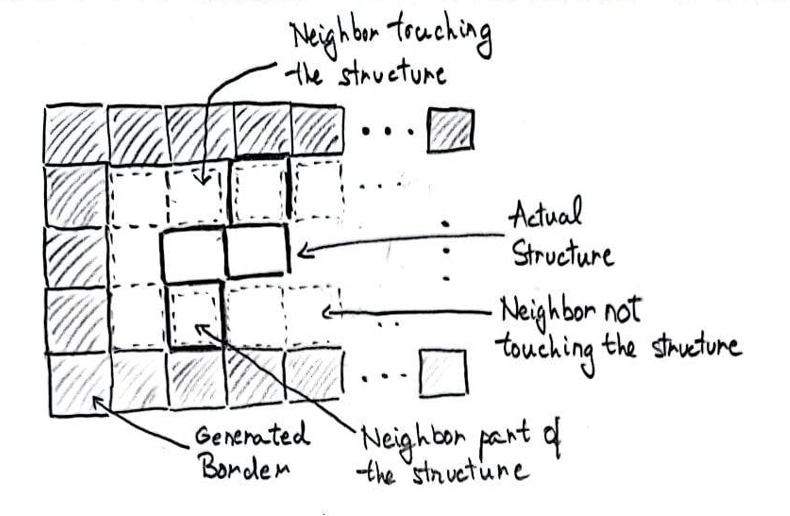 Neighbor touching
the structure
Actual
Structure
Neighbor not
touching the structure
Generated
Border
Neighbor part of
the structure